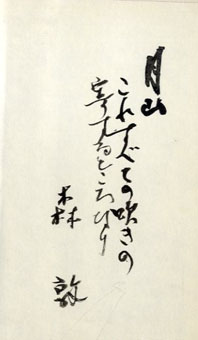 月山
これすべての吹きの
寄するところなり
森敦